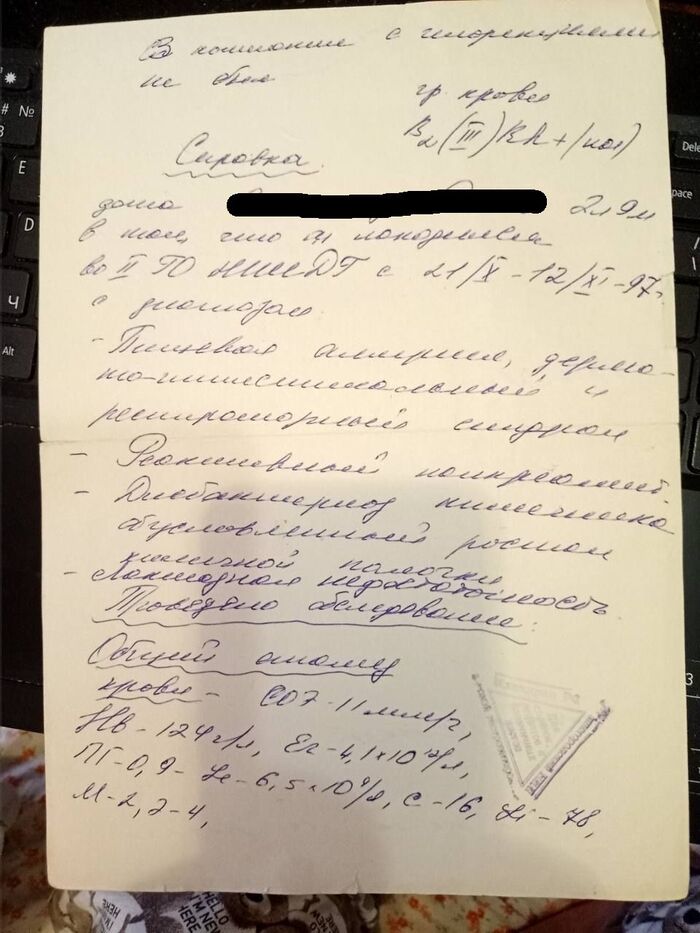 В контакте с
не был
гр. крови
B₂(III) Rh+(пол)
Справка.
дана 2л 9м
в том, что он находился
во II ПО НИИДГ с 21/X-12/XI-97г.
с диагнозом
- Пищевая аллергия, дерма-
то-интестинальный и
респираторный синдром
- Реактивный панкреатит
- Дисбактериоз кишечника
обусловленный ростом
кишечной палочки
- Лактазная недостаточность
Проведено обследование:
Общий анализ
крови - СОЭ-11 мм/г,
Hb-124г/л, Er-4,1×10¹²/л,
ЦП-0,9- Le-6,5×10⁹/л, с-16, Li-78,
М-2, Э-4,
Del
# №
3
E
D
Ч
Alt
HELLO
I'M NEW
HERE